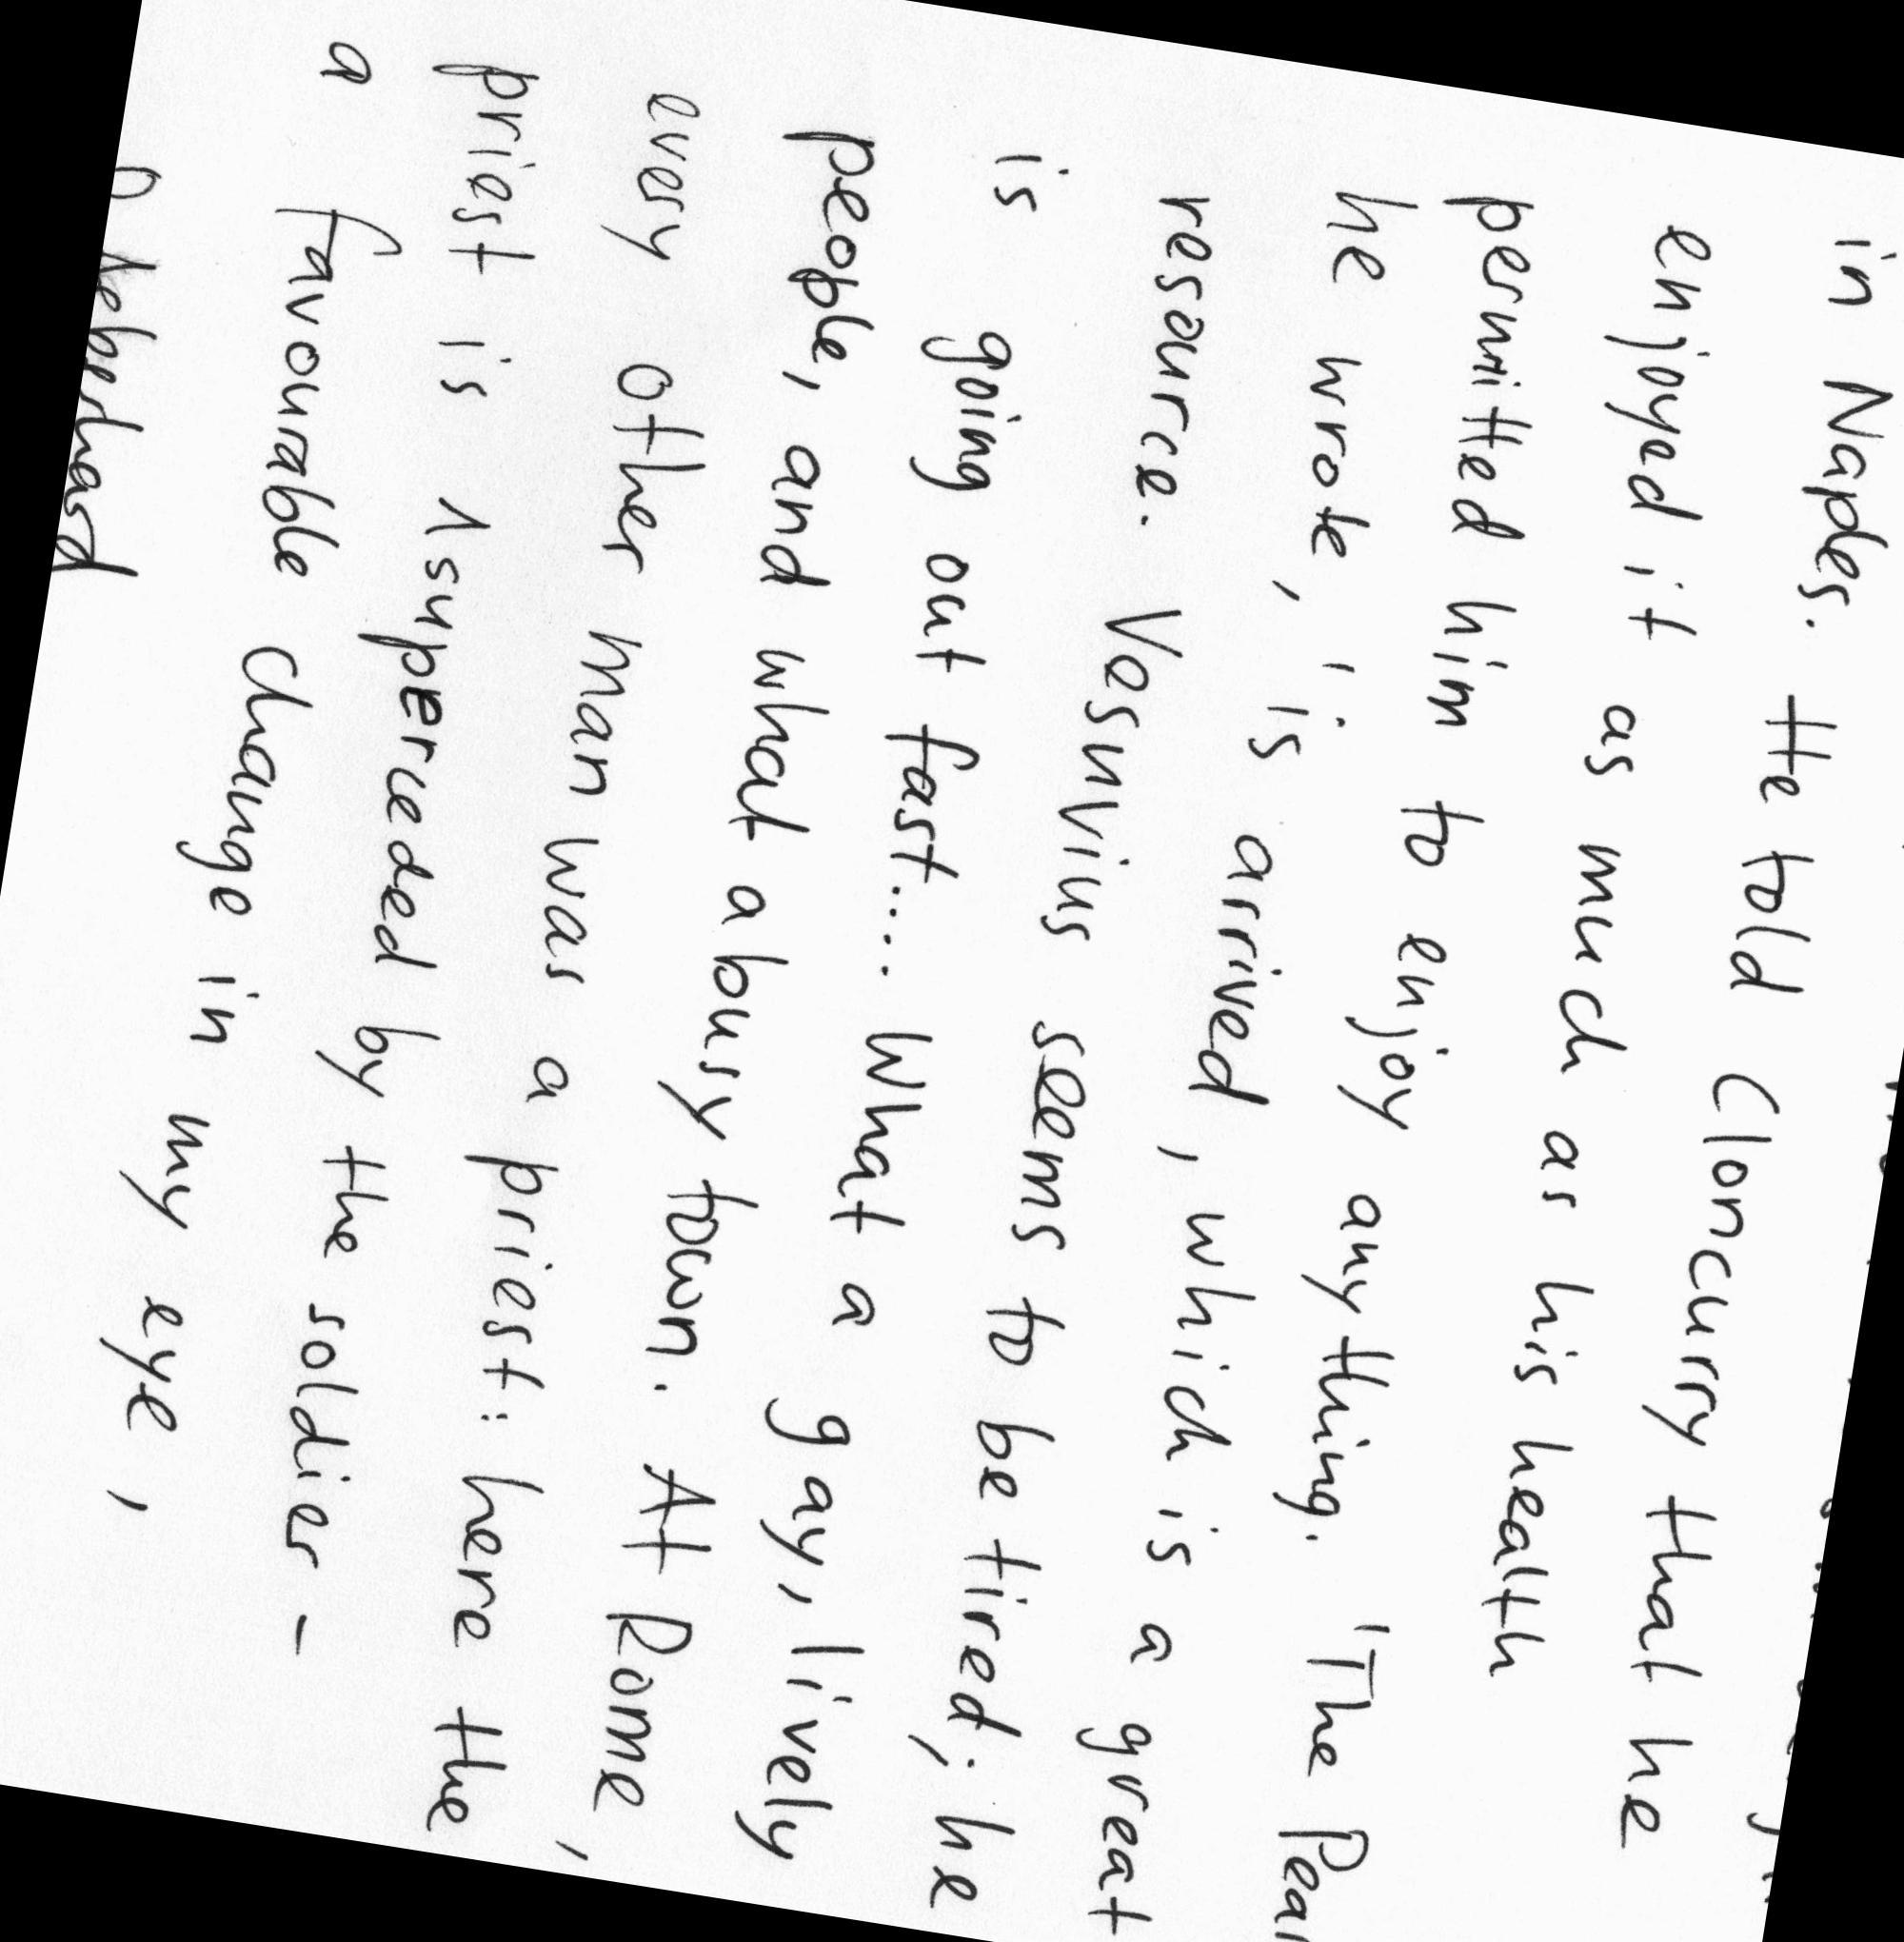 in Naples. He told Cloncurry that he
enjoyed it as much as his health
permitted him to enjoy anything. 'The
he wrote, 'is arrived, which is a great
resource. Vesuvius seems to be tired; he
is going out fast... What a gay, lively
people, and what a busy town. At Rome,
every other man was a priest: here the
priest is superceded by the soldier -
a favourable change in my eye,